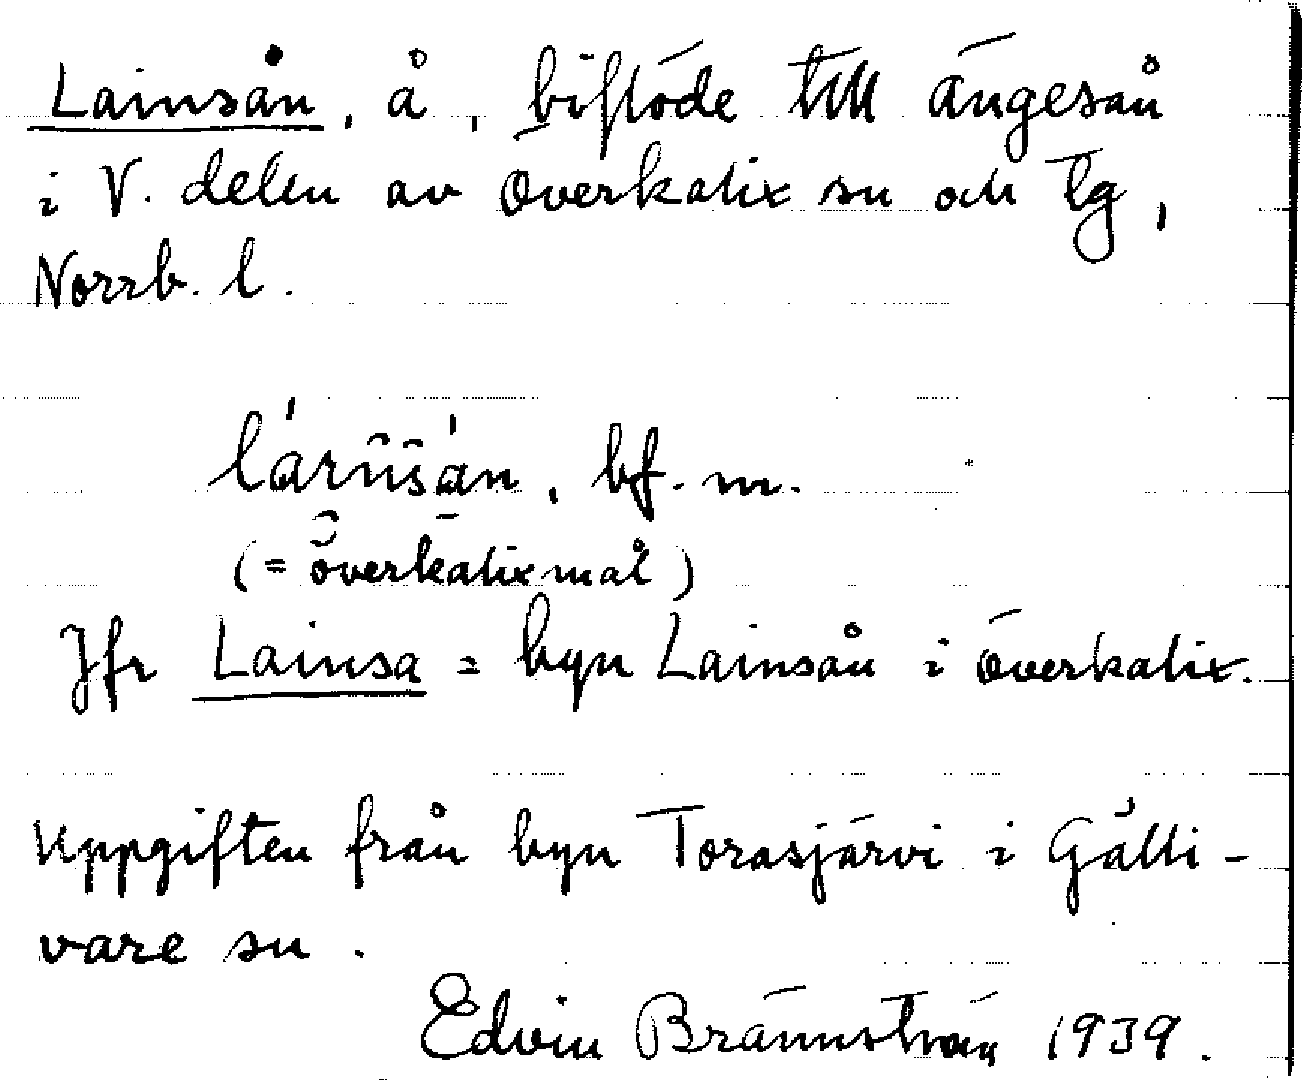 Lainsån, å, biflöde till Ängesån
i V. delen av Överkalix sn och tg,
Norrb. l.
bf. m.
(= överkalixmål)
Jfr Lainså = byn Lainsån i Överkalix.
Uppgiften från byn Torasjärvi i Gälli-
vare sn.
Edvin Brännström 1939.